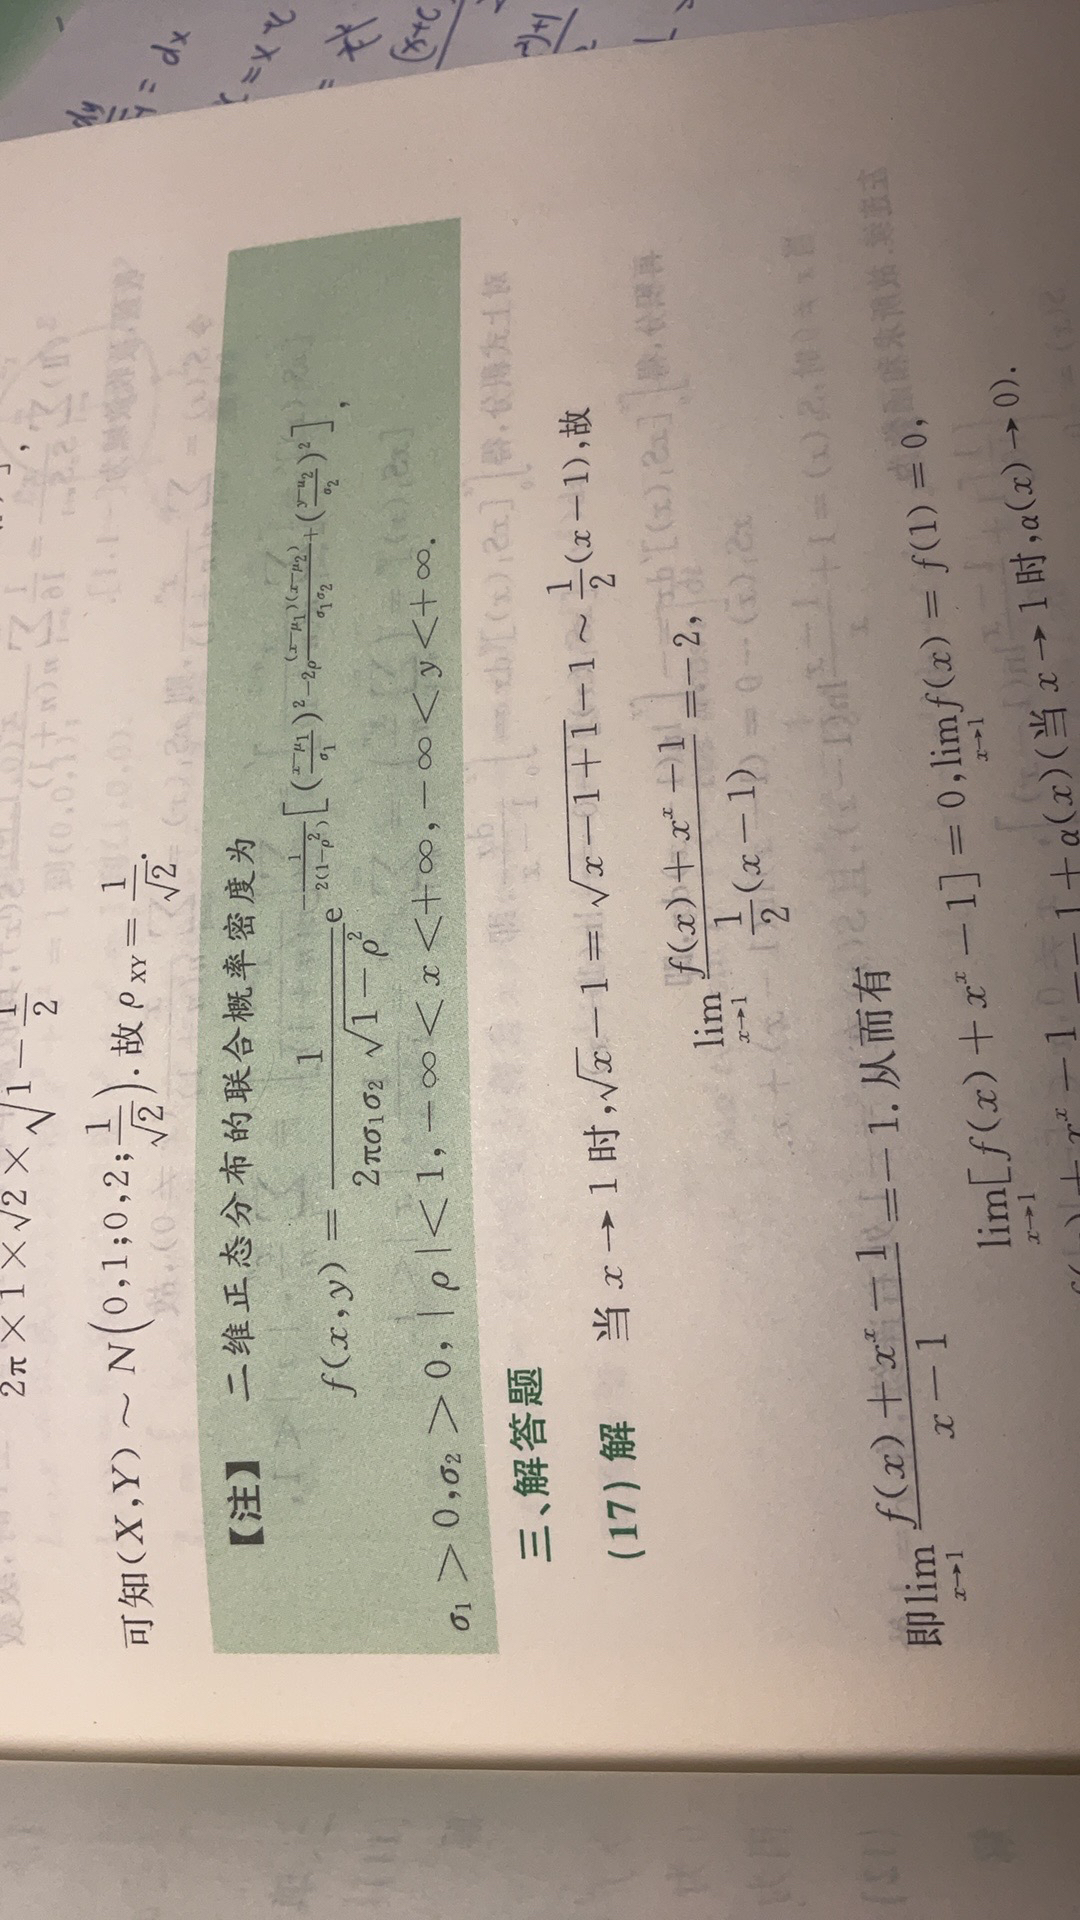 2π×1×√2×√1−1/2
可知(X,Y) ~ N(0,1;0,2;1/√2).故 ρ_XY = 1/√2.
【注】 二维正态分布的联合概率密度为
f(x,y) = 1/(2πσ₁σ₂√(1−ρ²)) e^{−1/(2(1−ρ²))[((x−μ₁)/σ₁)²−2ρ(x−μ₁)(x−μ₂)/(σ₁σ₂)+((y−u₂)/σ₂)²]},
σ₁ > 0,σ₂ > 0,|ρ|< 1,−∞ < x <+∞,−∞ < y <+∞.
三、解答题
(17) 解 当 x → 1 时,√x − 1 = √(x−1+1) − 1 ~ 1/2(x−1),故
lim_{x→1} (f(x)+x^x−1)/(1/2(x−1)) =− 2,
即 lim_{x→1} (f(x)+x^x−1)/(x−1) =− 1.从而有
lim_{x→1}[f(x)+x^x−1] = 0,lim_{x→1}f(x) = f(1) = 0,
x^x−1 =− 1 + α(x)(当 x → 1 时,α(x) → 0).